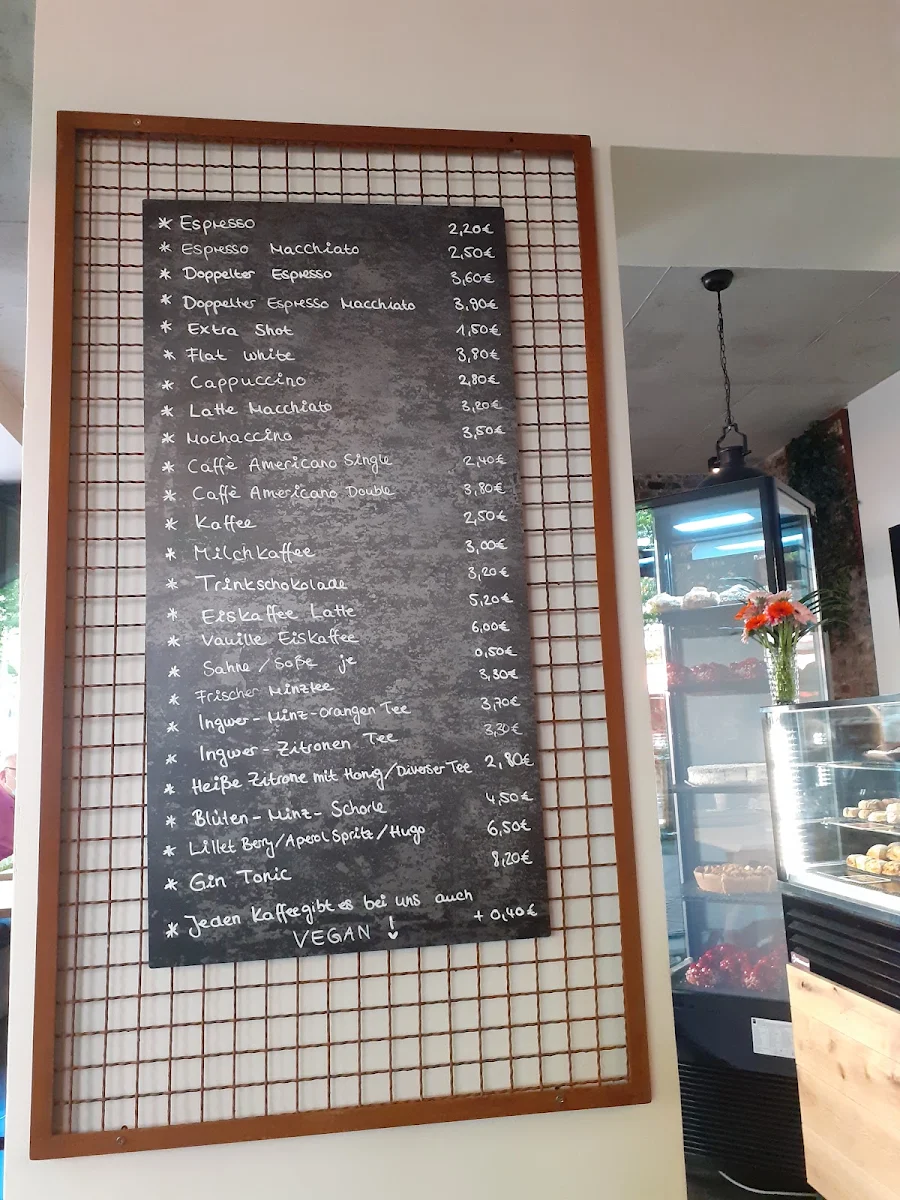 * Espresso 2,20€
* Espresso Macchiato 2,50€
* Doppelter Espresso 3,60€
* Doppelter Espresso Macchiato 3,90€
* Extra Shot 1,50€
* Flat White 3,80€
* Cappuccino 2,80€
* Latte Macchiato 3,20€
* Mochaccino 3,50€
* Caffè Americano Single 2,40€
* Caffè Americano Double 3,80€
* Kaffee 2,50€
* Milchkaffee 3,00€
* Trinkschokolade 3,20€
* Eiskaffee Latte 5,20€
* Vanille Eiskaffee 6,00€
* Sahne / Soße je 0,50€
* Frischer Minztee 3,30€
* Ingwer-Minz-Orangen Tee 3,70€
* Ingwer-Zitronen Tee 3,30€
* Heiße Zitrone mit Honig/Diverser Tee 2,80€
* Blüten-Minz-Schorle 4,50€
* Lillet Berry/Aperol Spritz/Hugo 6,50€
* Gin Tonic 8,20€
* Jeden Kaffee gibt es bei uns auch
VEGAN ! + 0,40€